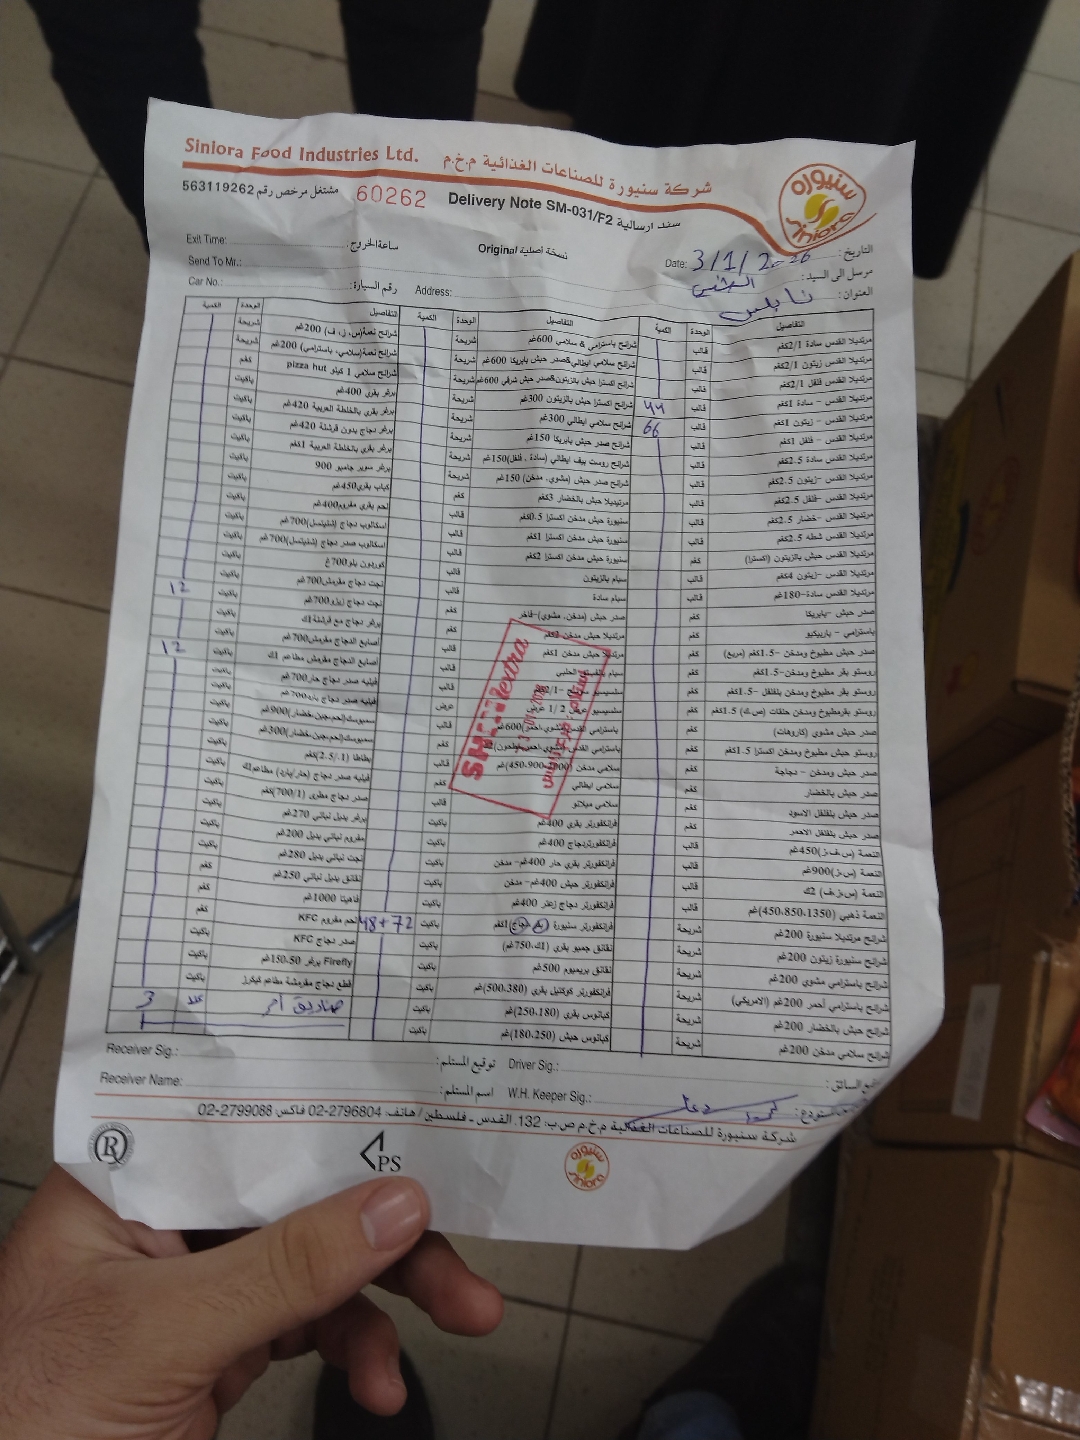 Siniora Food Industries Ltd. شركة سنيورة للصناعات الغذائية م.خ.م
سنيورة
Siniora
مشتغل مرخص رقم 563119262
60262
Delivery Note SM-031/F2 سند ارسالية
Exit Time: ساعة الخروج:
نسخة أصلية Original
Date: 3/1/2026 التاريخ:
Send To Mr.: مرسل الى السيد:
Car No.: رقم السيارة: Address: نابلس العنوان:
التفاصيل الوحدة الكمية التفاصيل الوحدة الكمية التفاصيل الوحدة الكمية
مرتديلا القدس سادة 2/1كغم قالب شرائح باسترامي & سلامي 600غم شريحة شرائح نعمة(س، ز، ف) 200غم شريحة
مرتديلا القدس زيتون 2/1كغم قالب شرائح سلامي ايطالي&صدر حبش بابريكا 600غم شريحة شرائح نعمة(سلامي، باسترامي) 200غم شريحة
مرتديلا القدس فلفل 2/1كغم قالب شرائح اكسترا حبش بالزيتون&صدر حبش شرقي 600غم شريحة شرائح سلامي 1 كيلو pizza hut كغم
مرتديلا القدس - سادة 1كغم قالب 44 شرائح اكسترا حبش بالزيتون 300غم شريحة برغر بقري 400غم باكيت
مرتديلا القدس - زيتون 1كغم قالب 66 شرائح سلامي ايطالي 300غم شريحة برغر بقري بالخلطة العربية 420غم باكيت
مرتديلا القدس - فلفل 1كغم قالب شرائح صدر حبش بابريكا 150غم شريحة برغر دجاج بدون فرشلة 420غم باكيت
مرتديلا القدس سادة 2.5كغم قالب شرائح روست بيف ايطالي (سادة ، فلفل)150غم شريحة برغر بقري بالخلطة العربية 1كغم باكيت
مرتديلا القدس -زيتون 2.5كغم قالب شرائح صدر حبش (مشوي، مدخن) 150غم شريحة برغر سوبر جامبو 900 باكيت
مرتديلا القدس -فلفل 2.5كغم قالب مرتيديلا حبش بالخضار 3كغم كغم كباب بقري450غم باكيت
مرتديلا القدس -خضار 2.5كغم قالب سنيورة حبش مدخن اكسترا 0.5كغم قالب لحم بقري مفروم400غم باكيت
مرتديلا القدس شطه 2.5كغم قالب سنيورة حبش مدخن اكسترا 1كغم قالب اسكالوب دجاج (شنيتسل)700غم باكيت
مرتديلا القدس حبش بالزيتون (اكسترا) كغم سنيورة حبش مدخن اكسترا 2كغم قالب اسكالوب صدر دجاج (شنيتسل)700غم باكيت
مرتديلا القدس -زيتون 4كغم قالب سيام بالزيتون قالب كوردون بلو700غ باكيت
مرتديلا القدس سادة-180غم قالب سيام سادة قالب نجت دجاج مقرمش700غم باكيت 12
صدر حبش -بابريكا كغم صدر حبش (مدخن، مشوي)-فاخر كغم نجت دجاج زيرو700غم باكيت
باسترامي - باربيكيو كغم مرتديلا حبش مدخن 2كغم كغم برغر دجاج مع قرشلة1ك باكيت
صدر حبش مطبوخ ومدخن -1.5كغم (مربع) كغم مرتديلا حبش مدخن 1كغم قالب أصابع الدجاج مقرمش700غم باكيت 12
روستو بقر مطبوخ ومدخن-1.5كغم كغم قالب أصابع الدجاج مقرمش مطاعم 1ك باكيت
روستو بقر مطبوخ ومدخن بلفلفل -1.5كغم كغم قالب فيليه صدر دجاج حار700غم باكيت
روستو بقرمطبوخ ومدخن حلقات (ص.ك) 1.5كغم كغم سلسيسيو عرض 2/ 1 عرض عرض فيليه صدر دجاج بارد700غم باكيت
صدر حبش مشوي (كاروهات) كغم قالب سمبوسك(لحم،جبن،خضار)900غم باكيت
روستو حبش مطبوخ ومدخن اكسترا 1.5كغم كغم كغم سمبوسك(لحم،جبن،خضار)300غم باكيت
صدر حبش ومدخن - دجاجة كغم قالب بطاطا (1 /2.5)كغم باكيت
صدر حبش بالخضار كغم سلامي ايطالي كغم فيليه صدر دجاج (حار/بارد) مطاعم1ك باكيت
صدر حبش بلفلفل الاسود كغم سلامي ميلانو قالب صدر دجاج مطري (700/1)كغم باكيت
صدر حبش بلفلفل الاحمر كغم فرانكفورتر بقري 400غم باكيت برغر بديل نباتي 270غم باكيت
النعمة (س.ف.ز)450غم قالب فرانكفورتردجاج 400غم باكيت مفروم نباتي بديل 200غم باكيت
النعمة (س.ز)900غم قالب فرانكفورتر بقري حار 400غم- مدخن باكيت نجت نباتي بديل 280غم باكيت
النعمة (س.ز.ف) 2ك قالب فرانكفورتر حبش 400غم- مدخن باكيت نقانق بديل نباتي 250غم كغم
النعمة ذهبي (450،850،1350)غم قالب فرانكفورتر دجاج زعتر 400غم باكيت فاهيتا 1000غم كغم
شرائح مرتديلا سنيورة 200غم شريحة فرانكفورتر سنيورة (بقر، دجاج) 1كغم باكيت 48+72 لحم مفروم KFC كغم
شرائح سنيورة زيتون 200غم شريحة نقانق جمبو بقري (1ك،750غم) باكيت صدر دجاج KFC باكيت
شرائح باسترامي مشوي 200غم شريحة نقانق بريميوم 500غم باكيت Firefly برغر 50-150غم باكيت
شرائح باسترامي أحمر 200غم (الامريكي) شريحة فرانكفورتر كوكتيل بقري (500،380)غم باكيت قطع دجاج مقرمشة مطاعم كيكرز باكيت
شرائح حبش بالخضار 200غم شريحة كبانوس بقري (250،180)غم باكيت صناديق عدد 3
شرائح سلامي مدخن 200غم شريحة كبانوس حبش (180،250)غم باكيت
extra
Receiver Sig.: توقيع المستلم: Driver Sig.: السائق:
Receiver Name: اسم المستلم: W.H. Keeper Sig.:
شركة سنيورة للصناعات الغذائية م.خ.م ص.ب: 132، القدس ـ فلسطين / هاتف: 2796804-02 فاكس 2799088-02
R
PS
سنيورة
Siniora